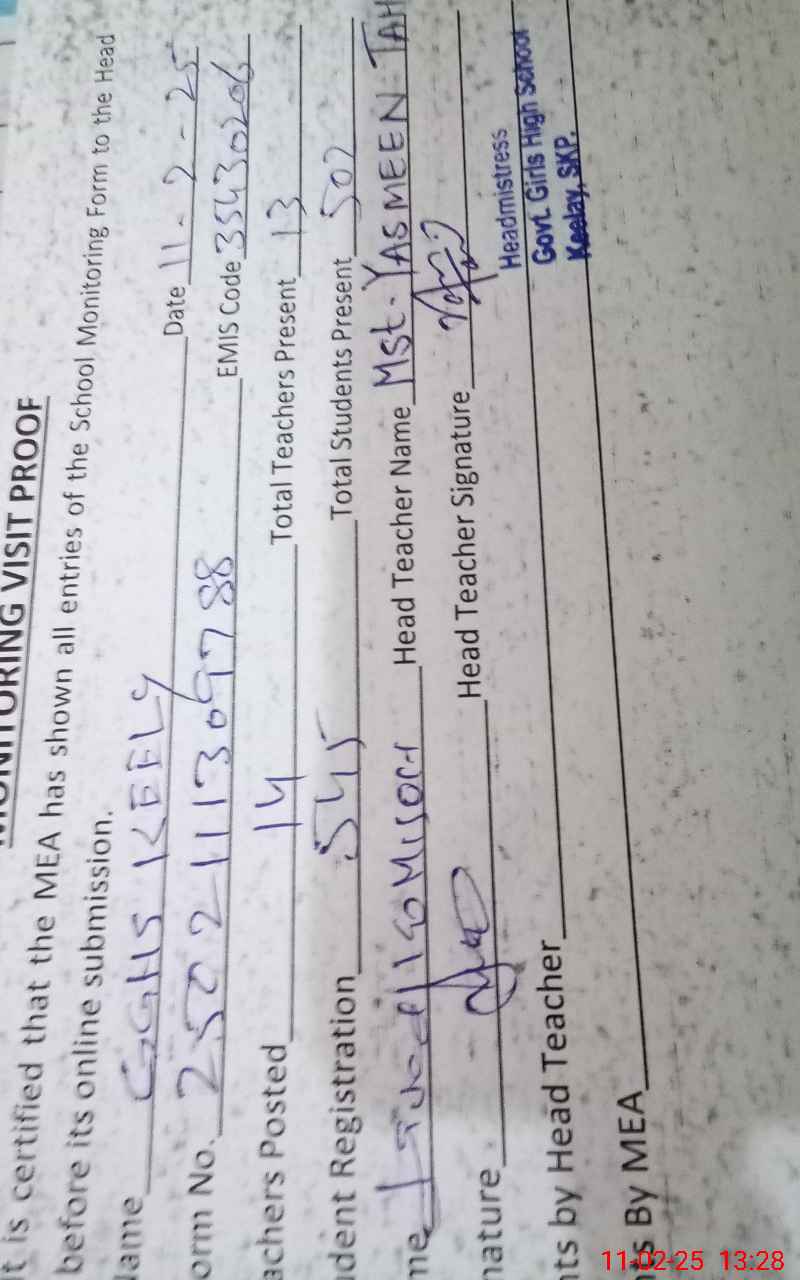 MONITORING VISIT PROOF
t is certified that the MEA has shown all entries of the School Monitoring Form to the Head
before its online submission.
Name GGHS KEELY Date 11-2-25
orm No. 2502111309788 EMIS Code 35430206
achers Posted 14 Total Teachers Present 13
dent Registration 545 Total Students Present 502
me Head Teacher Name Mst. YASMEEN TAH
nature Head Teacher Signature
Headmistress
Govt. Girls High School
Keelay, SKP.
nts by Head Teacher
nts By MEA
11-02-25 13:28